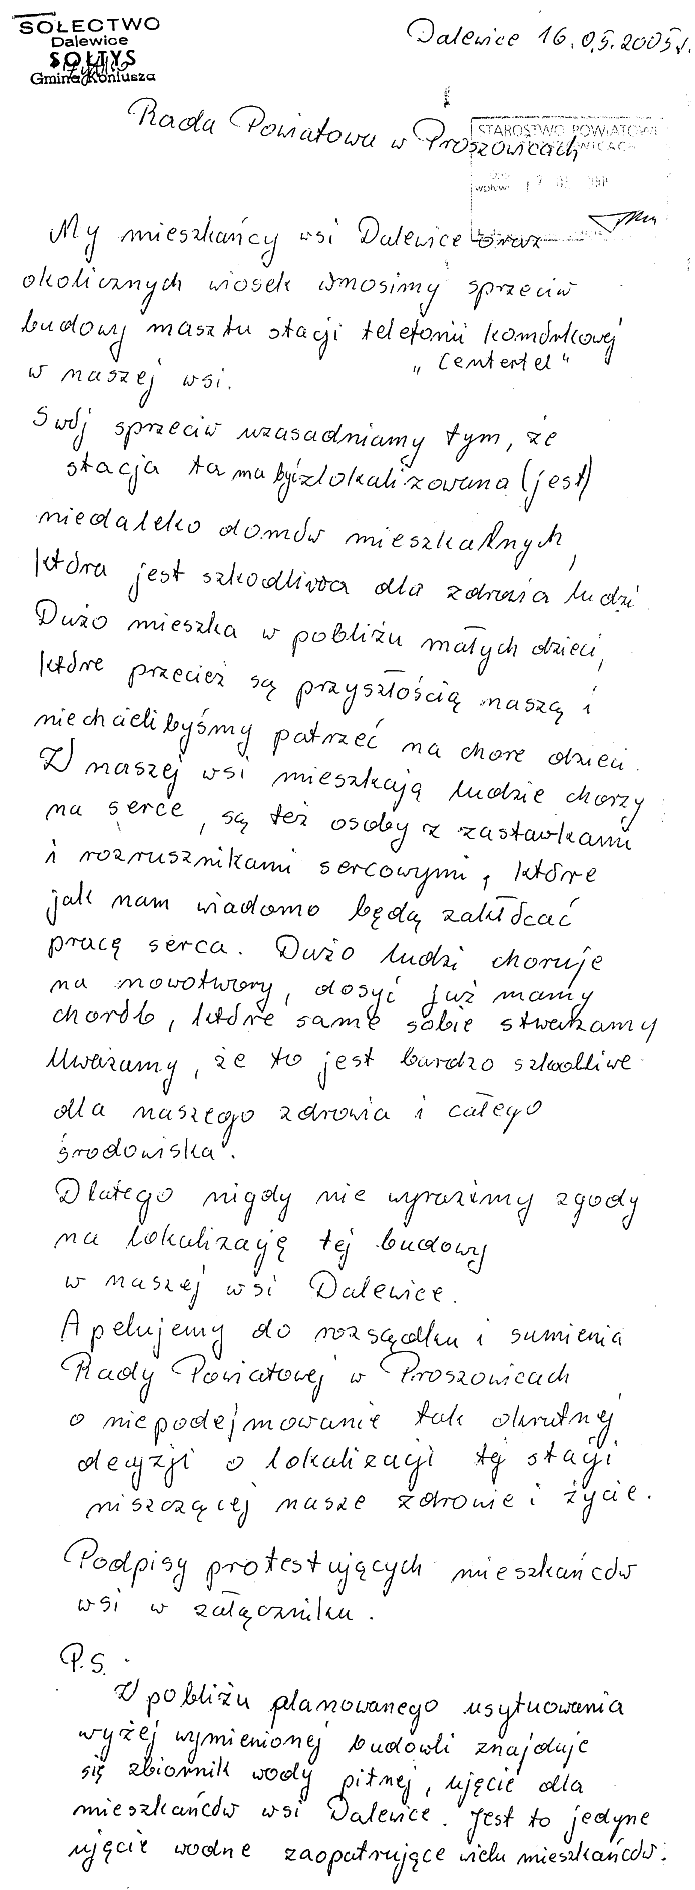 SOŁECTWO
Dalewice
SOŁTYS
Gmina Koniusza
Dalewice 16.05.2005r.
Rada Powiatowa w Proszowicach
STAROSTWO POWIATOWE
My mieszkańcy wsi Dalewice oraz
okolicznych wiosek wnosimy sprzeciw
budowy masztu stacji telefonii komórkowej
"Centertel"
w naszej wsi.
Swój sprzeciw uzasadniamy tym, że
stacja ta ma być zlokalizowana (jest)
niedaleko domów mieszkalnych,
która jest szkodliwa dla zdrowia ludzi.
Dużo mieszka w pobliżu małych dzieci,
które przecież są przyszłością naszą i
niechcielibyśmy patrzeć na chore dzieci.
W naszej wsi mieszkają ludzie chorzy
na serce, są też osoby z zastawkami
i rozrusznikami sercowymi, które
jak nam wiadomo będą zakłócać
pracę serca. Dużo ludzi choruje
na nowotwory, dosyć już mamy
chorób, które same sobie stwarzamy
Uważamy, że to jest bardzo szkodliwe
dla naszego zdrowia i całego
środowiska.
Dlatego nigdy nie wyrazimy zgody
na lokalizację tej budowy
w naszej wsi Dalewice.
Apelujemy do rozsądku i sumienia
Rady Powiatowej w Proszowicach
o niepodejmowanie tak okrutnej
decyzji o lokalizacji tej stacji
niszczącej nasze zdrowie i życie.
Podpisy protestujących mieszkańców
wsi w załączniku.
P.S.
W pobliżu planowanego usytuowania
wyżej wymienionej budowli znajduje
się zbiornik wody pitnej, ujęcie dla
mieszkańców wsi Dalewice. Jest to jedyne
ujęcie wodne zaopatrujące wielu mieszkańców.